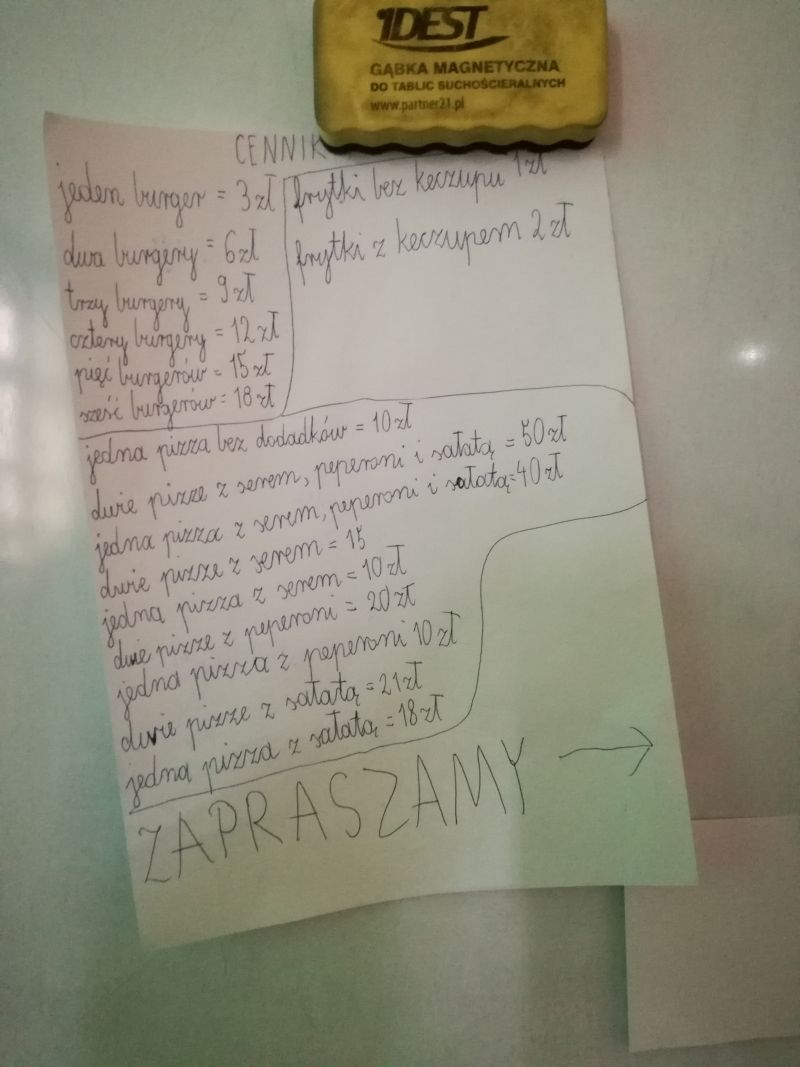 1DEST
GĄBKA MAGNETYCZNA
DO TABLIC SUCHOŚCIERALNYCH
www.partner21.pl
CENNIK
jeden burger = 3 zł
dwa burgery = 6 zł
trzy burgery = 9 zł
cztery burgery = 12 zł
pięć burgerów = 15 zł
sześć burgerów = 18 zł
frytki bez keczupu 1 zł
frytki z keczupem 2 zł
jedna pizza bez dodadków = 10 zł
dwie pizze z serem, peperoni i sałatą = 50 zł
jedna pizza z serem, peperoni i sałatą = 40 zł
dwie pizze z serem = 15
jedna pizza z serem = 10 zł
dwie pizze z peperoni = 20 zł
jedna pizza z peperoni 10 zł
dwie pizze z sałatą = 21 zł
jedna pizza z sałatą = 18 zł
ZAPRASZAMY →